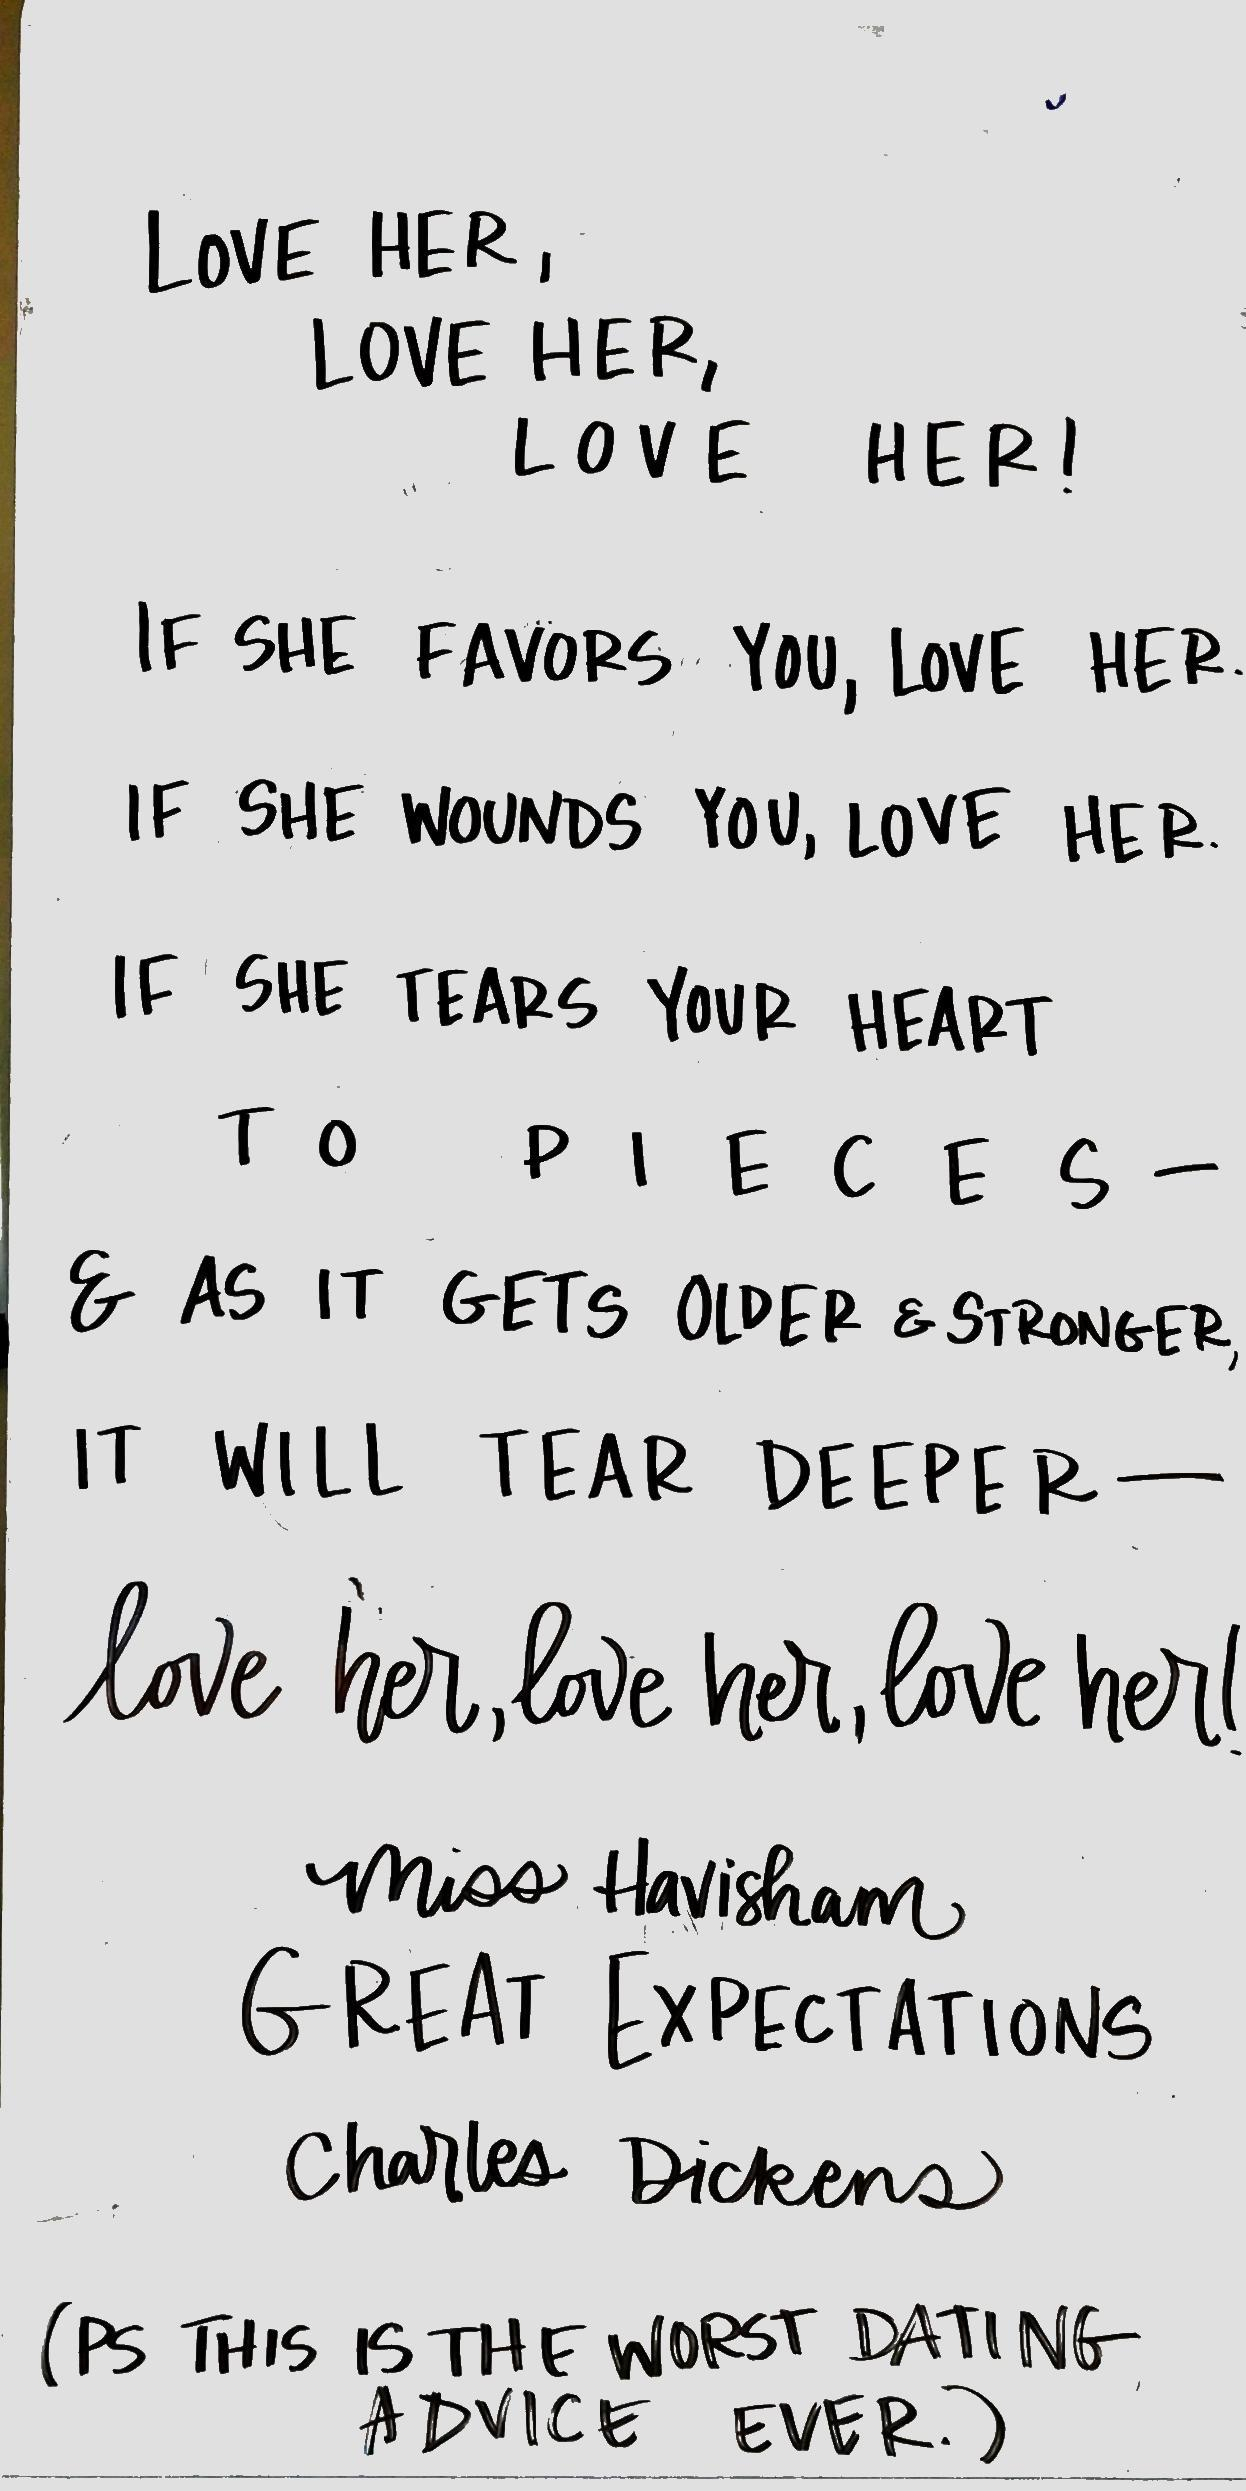 LOVE HER,
LOVE HER,
LOVE HER!
IF SHE FAVORS YOU, LOVE HER.
IF SHE WOUNDS YOU, LOVE HER.
IF SHE TEARS YOUR HEART
TO PIECES—
& AS IT GETS OLDER & STRONGER,
IT WILL TEAR DEEPER—
love her, love her, love her!
Miss Havisham
GREAT EXPECTATIONS
Charles Dickens
(PS THIS IS THE WORST DATING
ADVICE EVER.)